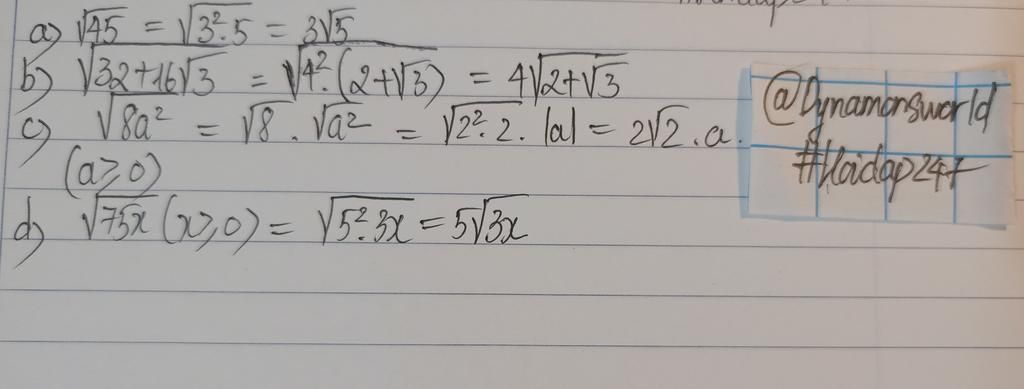 a) √45 = √3².5 = 3√5
b) √32+16√3 = √4².(2+√3) = 4√2+√3
c) √8a² = √8 . √a² = √2².2 . |a| = 2√2 . a.
(a≥0)
d) √75x (x≥0) = √5².3x = 5√3x
@Dynamonsworld
#Hoidap247